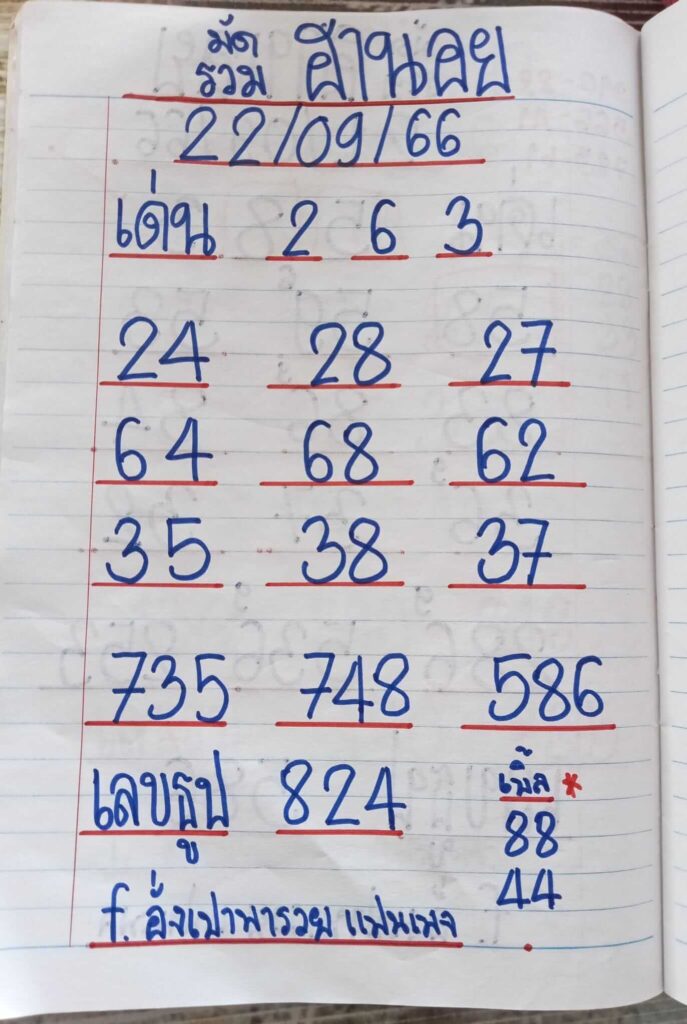 มัดรวม ฮานอย
22/09/66
เด่น 2 6 3
24 28 27
64 68 62
35 38 37
735 748 586
เลขธูป 824
เบิ้ล *
88
44
f. อั่งเปาพารวย แฟนเพจ